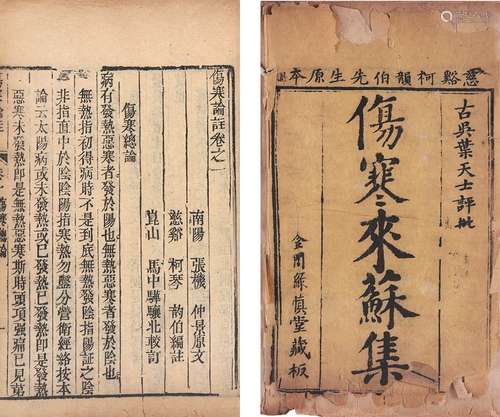 慈谿柯韻伯先生原本
古吳葉天士評批
傷寒來蘇集
金閶綠慎堂藏板
傷寒論註卷之一
南陽 張機 仲景原文
慈谿 柯琴 韵伯編註
崑山 馬中驊驤北較訂
傷寒總論
病有發熱惡寒者發於陽也無熱惡寒者發於陰也
無熱指初得病時不是到底無熱發陰指陽証之陰
非指直中於陰陰陽指寒熱勿鑿分營衛經絡按本
論云太陽病或未發熱或已發熱已發熱即是發熱
惡寒未發熱即是無熱惡寒斯時頭項强痛已見第